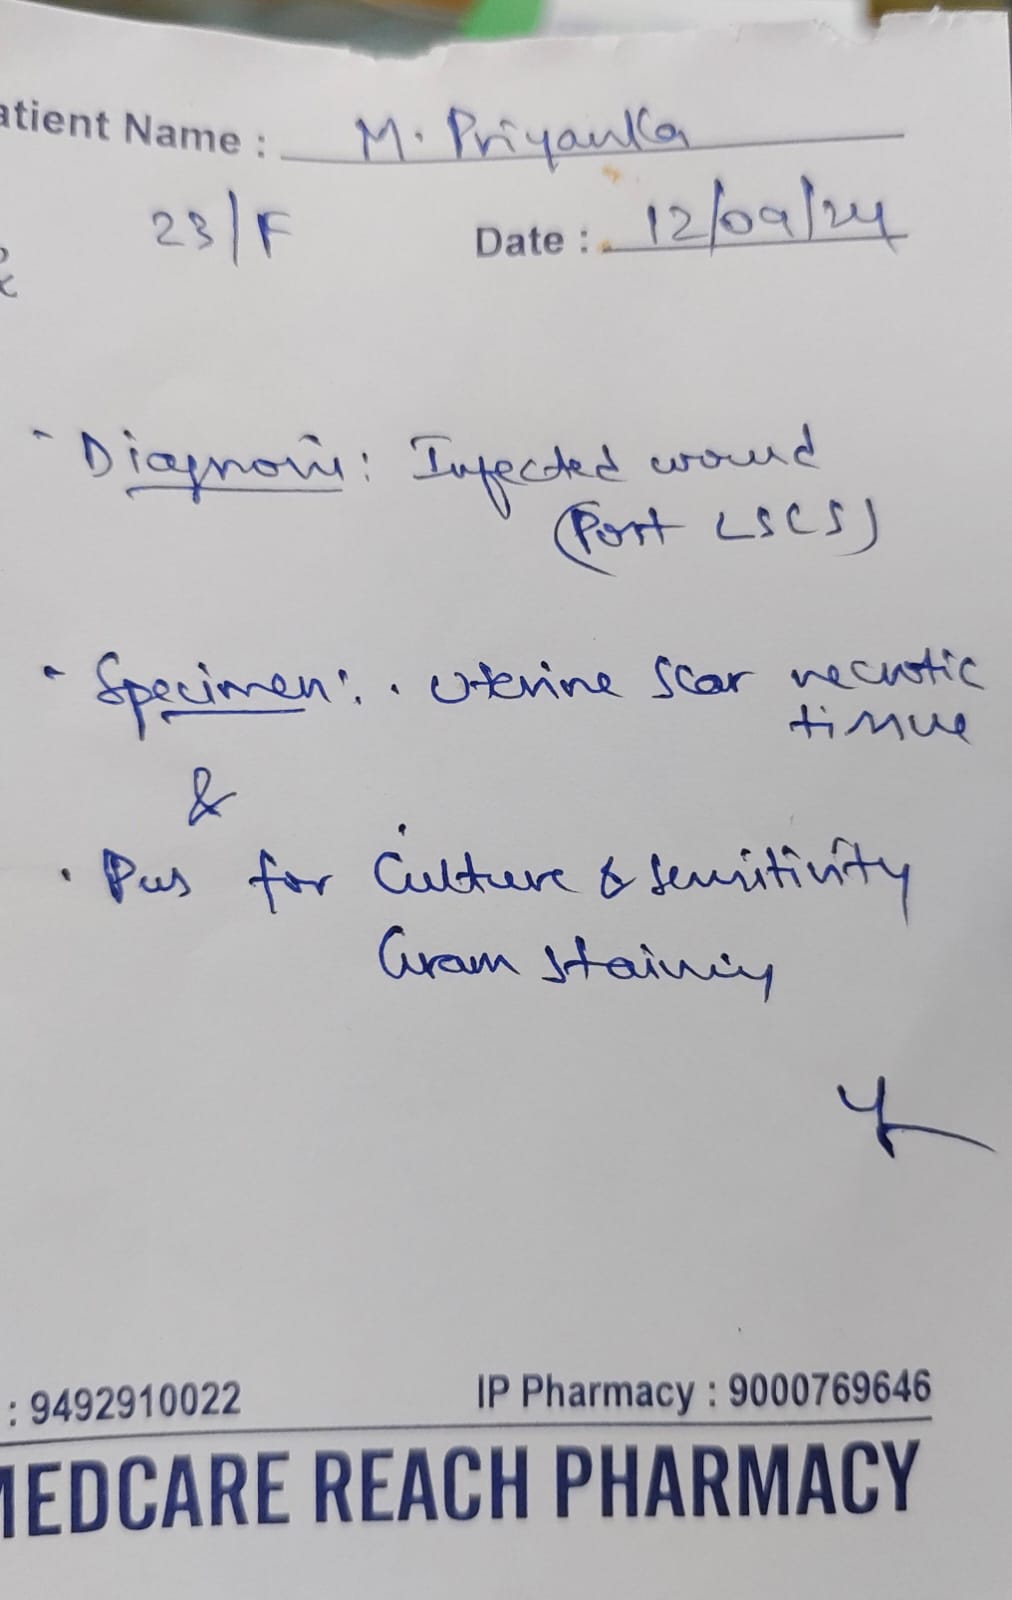 atient Name : M. Priyanka
23/F Date : 12/09/24
- Diagnosis: Infected wound
(Post LSCS)
- Specimen: . Uterine Scar necrotic
tissue
&
. Pus for Culture & Sensitivity
Gram staining
: 9492910022 IP Pharmacy : 9000769646
MEDCARE REACH PHARMACY